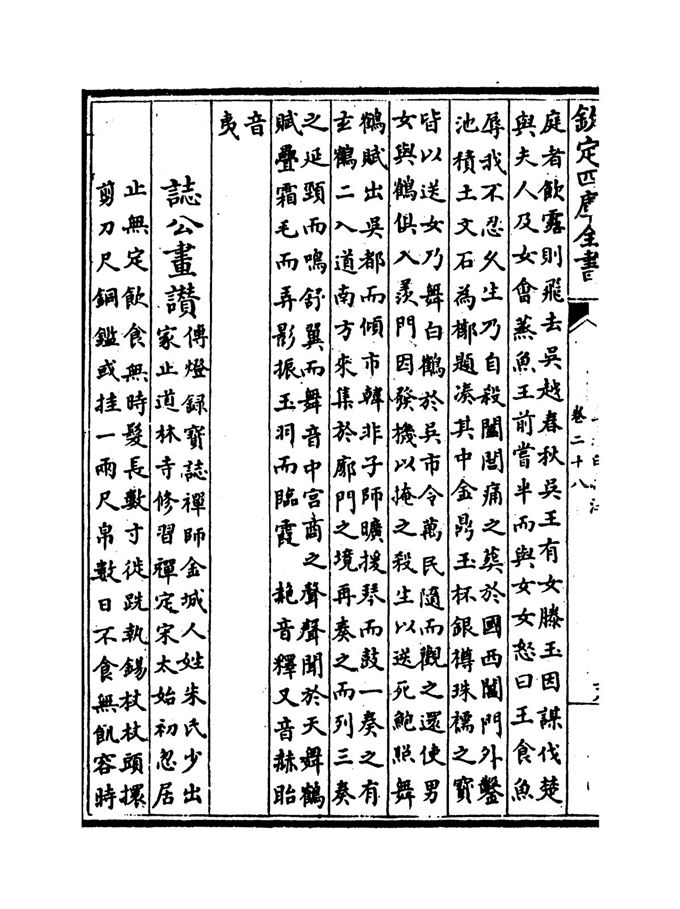 欽定四庫全書
卷二十八
庭者飲露則飛去吳越春秋吳王有女滕玉因謀伐楚
與夫人及女會蒸魚王前嘗半而與女女怒曰王食魚
辱我不忍久生乃自殺闔閭痛之葬於國西閶門外鑿
池積土文石為槨題凑其中金鼎玉杯銀樽珠襦之寶
皆以送女乃舞白鶴於吳市令萬民隨而觀之還使男
女與鶴俱入羨門因發機以掩之殺生以送死鮑照舞
鶴賦出吳都而傾市韓非子師曠援琴而鼓一奏之有
玄鶴二八道南方來集於廓門之境再奏之而列三奏
之延頸而鳴舒翼而舞音中宮商之聲聲聞於天舞鶴
賦疊霜毛而弄影振玉羽而臨霞 赩音釋又音赫眙
音
夷
誌公畫讚
傳燈録寶誌禪師金城人姓朱氏少出
家止道林寺修習禪定宋太始初忽居
止無定飲食無時髮長數寸徙跣執錫杖杖頭擐
剪刀尺銅鑑或挂一兩尺帛數日不食無飢容時